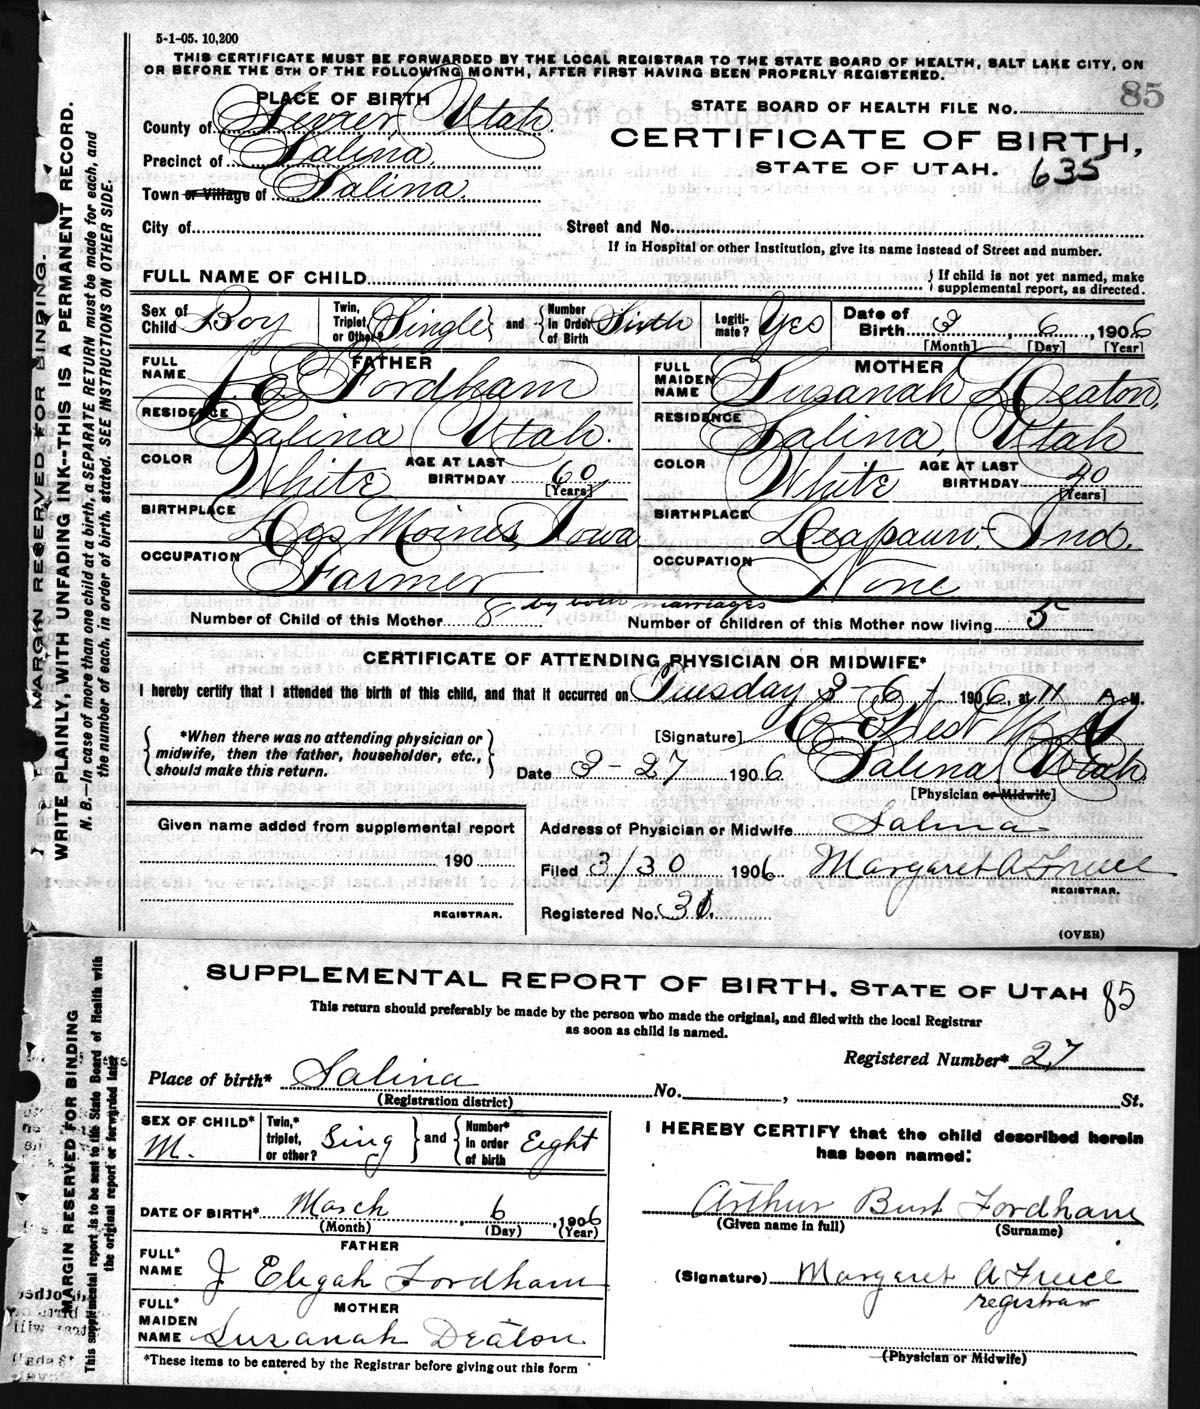 5-1-05. 10,200
THIS CERTIFICATE MUST BE FORWARDED BY THE LOCAL REGISTRAR TO THE STATE BOARD OF HEALTH, SALT LAKE CITY, ON
OR BEFORE THE 5TH OF THE FOLLOWING MONTH, AFTER FIRST HAVING BEEN PROPERLY REGISTERED.
PLACE OF BIRTH
STATE BOARD OF HEALTH FILE NO. 85
County of Sevier, Utah.
CERTIFICATE OF BIRTH,
Precinct of Salina
STATE OF UTAH. 635
Town or Village of Salina.
City of Street and No.
If in Hospital or other Institution, give its name instead of Street and number.
FULL NAME OF CHILD } If child is not yet named, make supplemental report, as directed.
Sex of Child Boy Twin, Triplet, or Other? Single and Number in Order of Birth Sixth Legitimate? Yes Date of Birth 3, 6, 1906
[Month] [Day] [Year]
FATHER MOTHER
FULL NAME J. E. Fordham FULL MAIDEN NAME Susanah Deaton,
RESIDENCE Salina, Utah. RESIDENCE Salina, Utah
COLOR White AGE AT LAST BIRTHDAY 60 [Years] COLOR White AGE AT LAST BIRTHDAY 40 [Years]
BIRTHPLACE Des Moines, Iowa BIRTHPLACE Deapauw, Ind.
OCCUPATION Farmer OCCUPATION None
Number of Child of this Mother 8 by both marriages Number of children of this Mother now living 5
CERTIFICATE OF ATTENDING PHYSICIAN OR MIDWIFE*
I hereby certify that I attended the birth of this child, and that it occurred on Tuesday 3-6, 1906, at 11 A.M.
*When there was no attending physician or midwife, then the father, householder, etc., should make this return.
[Signature] West M.D.
Date 3-27 1906 Salina, Utah
[Physician or Midwife]
Given name added from supplemental report
190
REGISTRAR.
Address of Physician or Midwife Salina
Filed 3/30 1906 Margaret A
REGISTRAR.
Registered No. 31.
(OVER)
MARGIN RESERVED FOR BINDING.
WRITE PLAINLY, WITH UNFADING INK--THIS IS A PERMANENT RECORD.
N. B.—In case of more than one child at a birth, a SEPARATE RETURN must be made for each, and
the number of each, in order of birth, stated. SEE INSTRUCTIONS ON OTHER SIDE.
SUPPLEMENTAL REPORT OF BIRTH. STATE OF UTAH 85
This return should preferably be made by the person who made the original, and filed with the local Registrar
as soon as child is named.
Registered Number* 27
Place of birth* Salina No. , St.
(Registration district)
SEX OF CHILD* M. Twin,* triplet, or other? Sing and Number* in order of birth Eight
DATE OF BIRTH* March, 6, 1906
(Month) (Day) (Year)
FATHER
FULL* NAME J Elegah Fordham
MOTHER
FULL* MAIDEN NAME Susanah Deaton
*These items to be entered by the Registrar before giving out this form
I HEREBY CERTIFY that the child described herein
has been named:
Arthur Burt Fordham
(Given name in full) (Surname)
(Signature) Margaret A
registrar
(Physician or Midwife)
MARGIN RESERVED FOR BINDING
This supplemental report is to be sent to the State Board of Health with
the original report or forwarded later